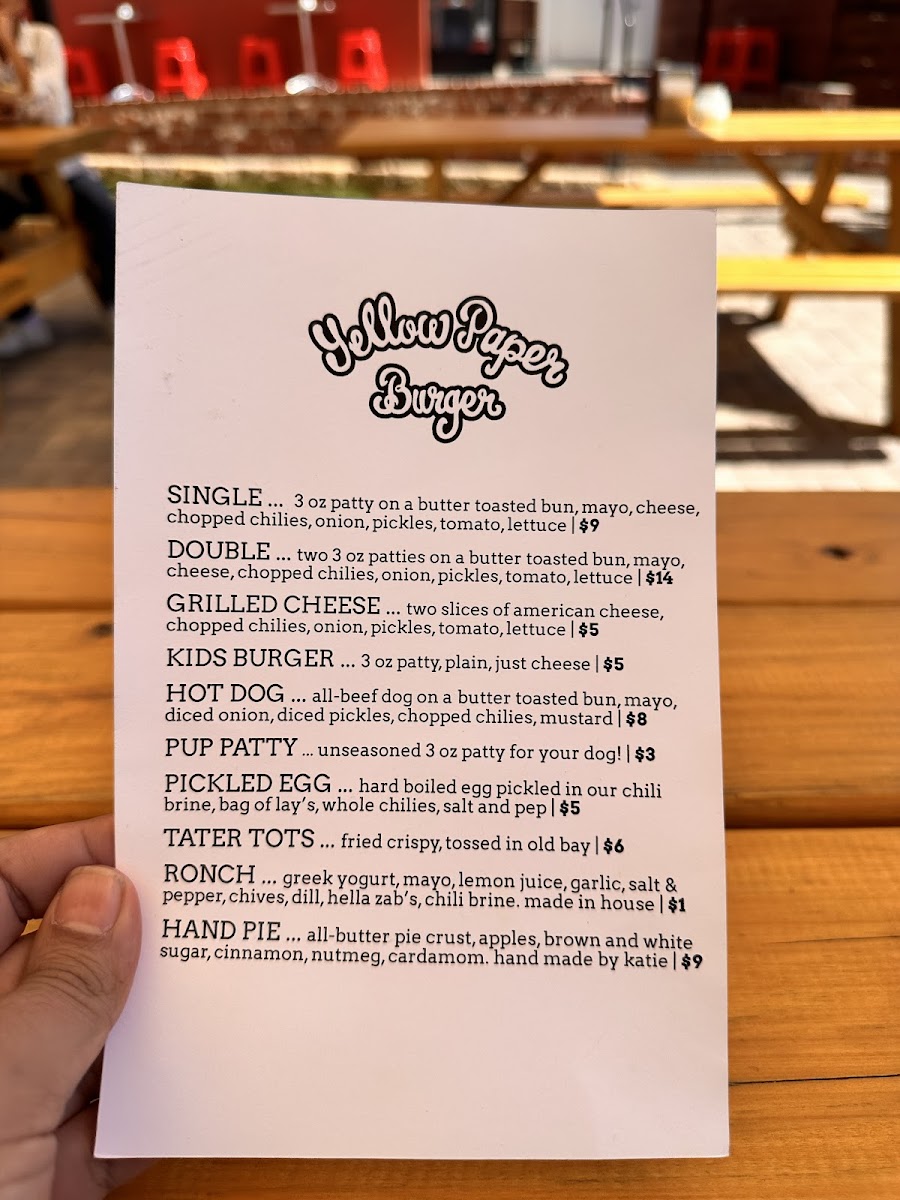 Yellow Paper
Burger
SINGLE ... 3 oz patty on a butter toasted bun, mayo, cheese,
chopped chilies, onion, pickles, tomato, lettuce | $9
DOUBLE ... two 3 oz patties on a butter toasted bun, mayo,
cheese, chopped chilies, onion, pickles, tomato, lettuce | $14
GRILLED CHEESE ... two slices of american cheese,
chopped chilies, onion, pickles, tomato, lettuce | $5
KIDS BURGER ... 3 oz patty, plain, just cheese | $5
HOT DOG ... all-beef dog on a butter toasted bun, mayo,
diced onion, diced pickles, chopped chilies, mustard | $8
PUP PATTY ... unseasoned 3 oz patty for your dog! | $3
PICKLED EGG ... hard boiled egg pickled in our chili
brine, bag of lay's, whole chilies, salt and pep | $5
TATER TOTS ... fried crispy, tossed in old bay | $6
RONCH ... greek yogurt, mayo, lemon juice, garlic, salt &
pepper, chives, dill, hella zab's, chili brine. made in house | $1
HAND PIE ... all-butter pie crust, apples, brown and white
sugar, cinnamon, nutmeg, cardamom. hand made by katie | $9